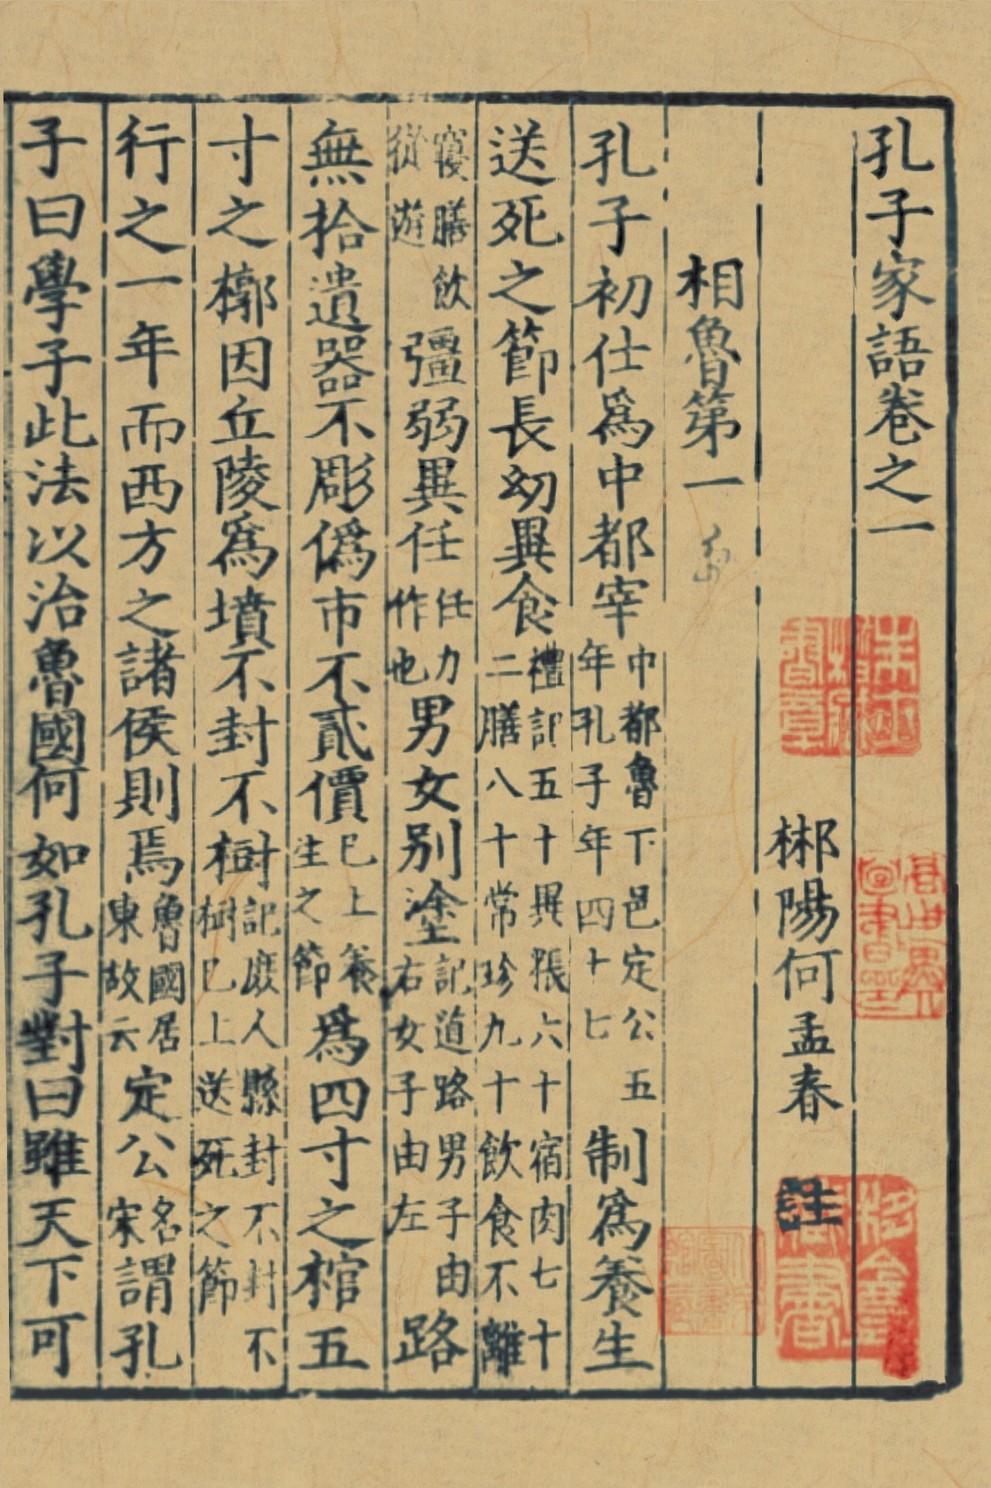 孔子家語卷之一
郴陽何孟春 註
相魯第一
孔子初仕爲中都宰中都魯下邑定公五年孔子年四十七制爲養生
送死之節長幼異食禮記五十異粻六十宿肉七十二膳八十常珍九十飲食不離
寢膳飲從遊彊弱異任任力作也男女別塗記道路男子由右女子由左路
無拾遺器不彫僞市不貳價已上養生之節爲四寸之棺五
寸之槨因丘陵爲墳不封不樹記庶人縣封不封不樹已上送死之節
行之一年而西方之諸侯則焉魯國居東故云定公名宋謂孔
子曰學子此法以治魯國何如孔子對曰雖天下可